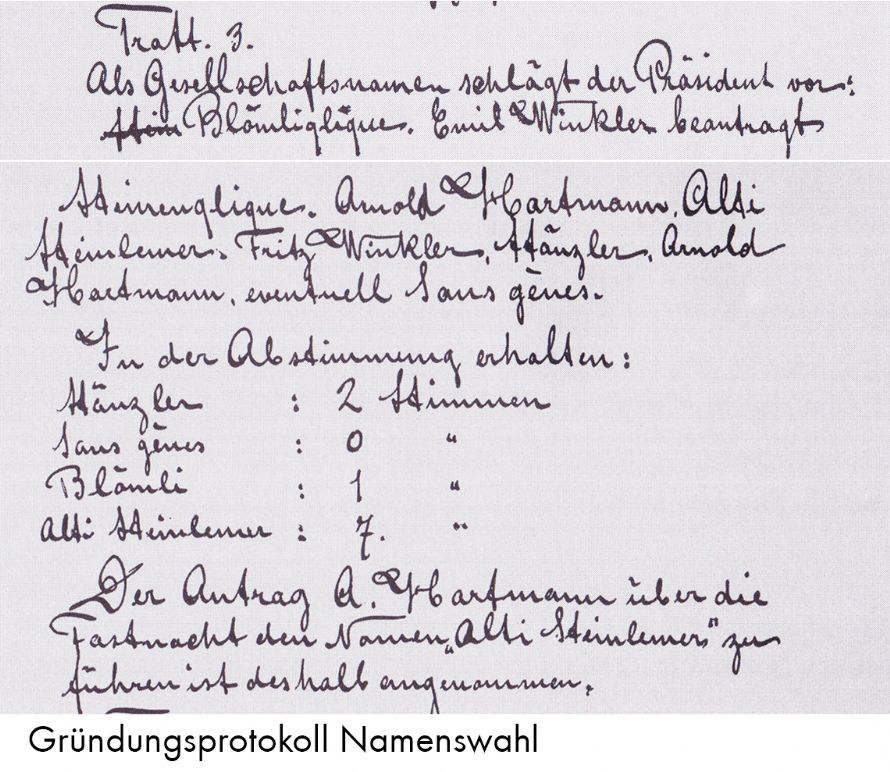 Tratt. 3.
Als Gesellschaftsnamen schlägt der Präsident vor:
Stein Blömliglique. Emil Winkler beantragt
Steinenglique. Arnold Hartmann, Alti
Steinlemer. Fritz Winkler, Stänzler, Arnold
Hartmann, eventuell Sans gènes.
In der Abstimmung erhalten:
Stänzler : 2 Stimmen
Sans gènes : 0 "
Blömli : 1 "
Alti Steinlemer : 7. "
Der Antrag A. Hartmann über die
Fastnacht den Namen „Alti Steinlemer" zu
führen ist deshalb angenommen.
Gründungsprotokoll Namenswahl